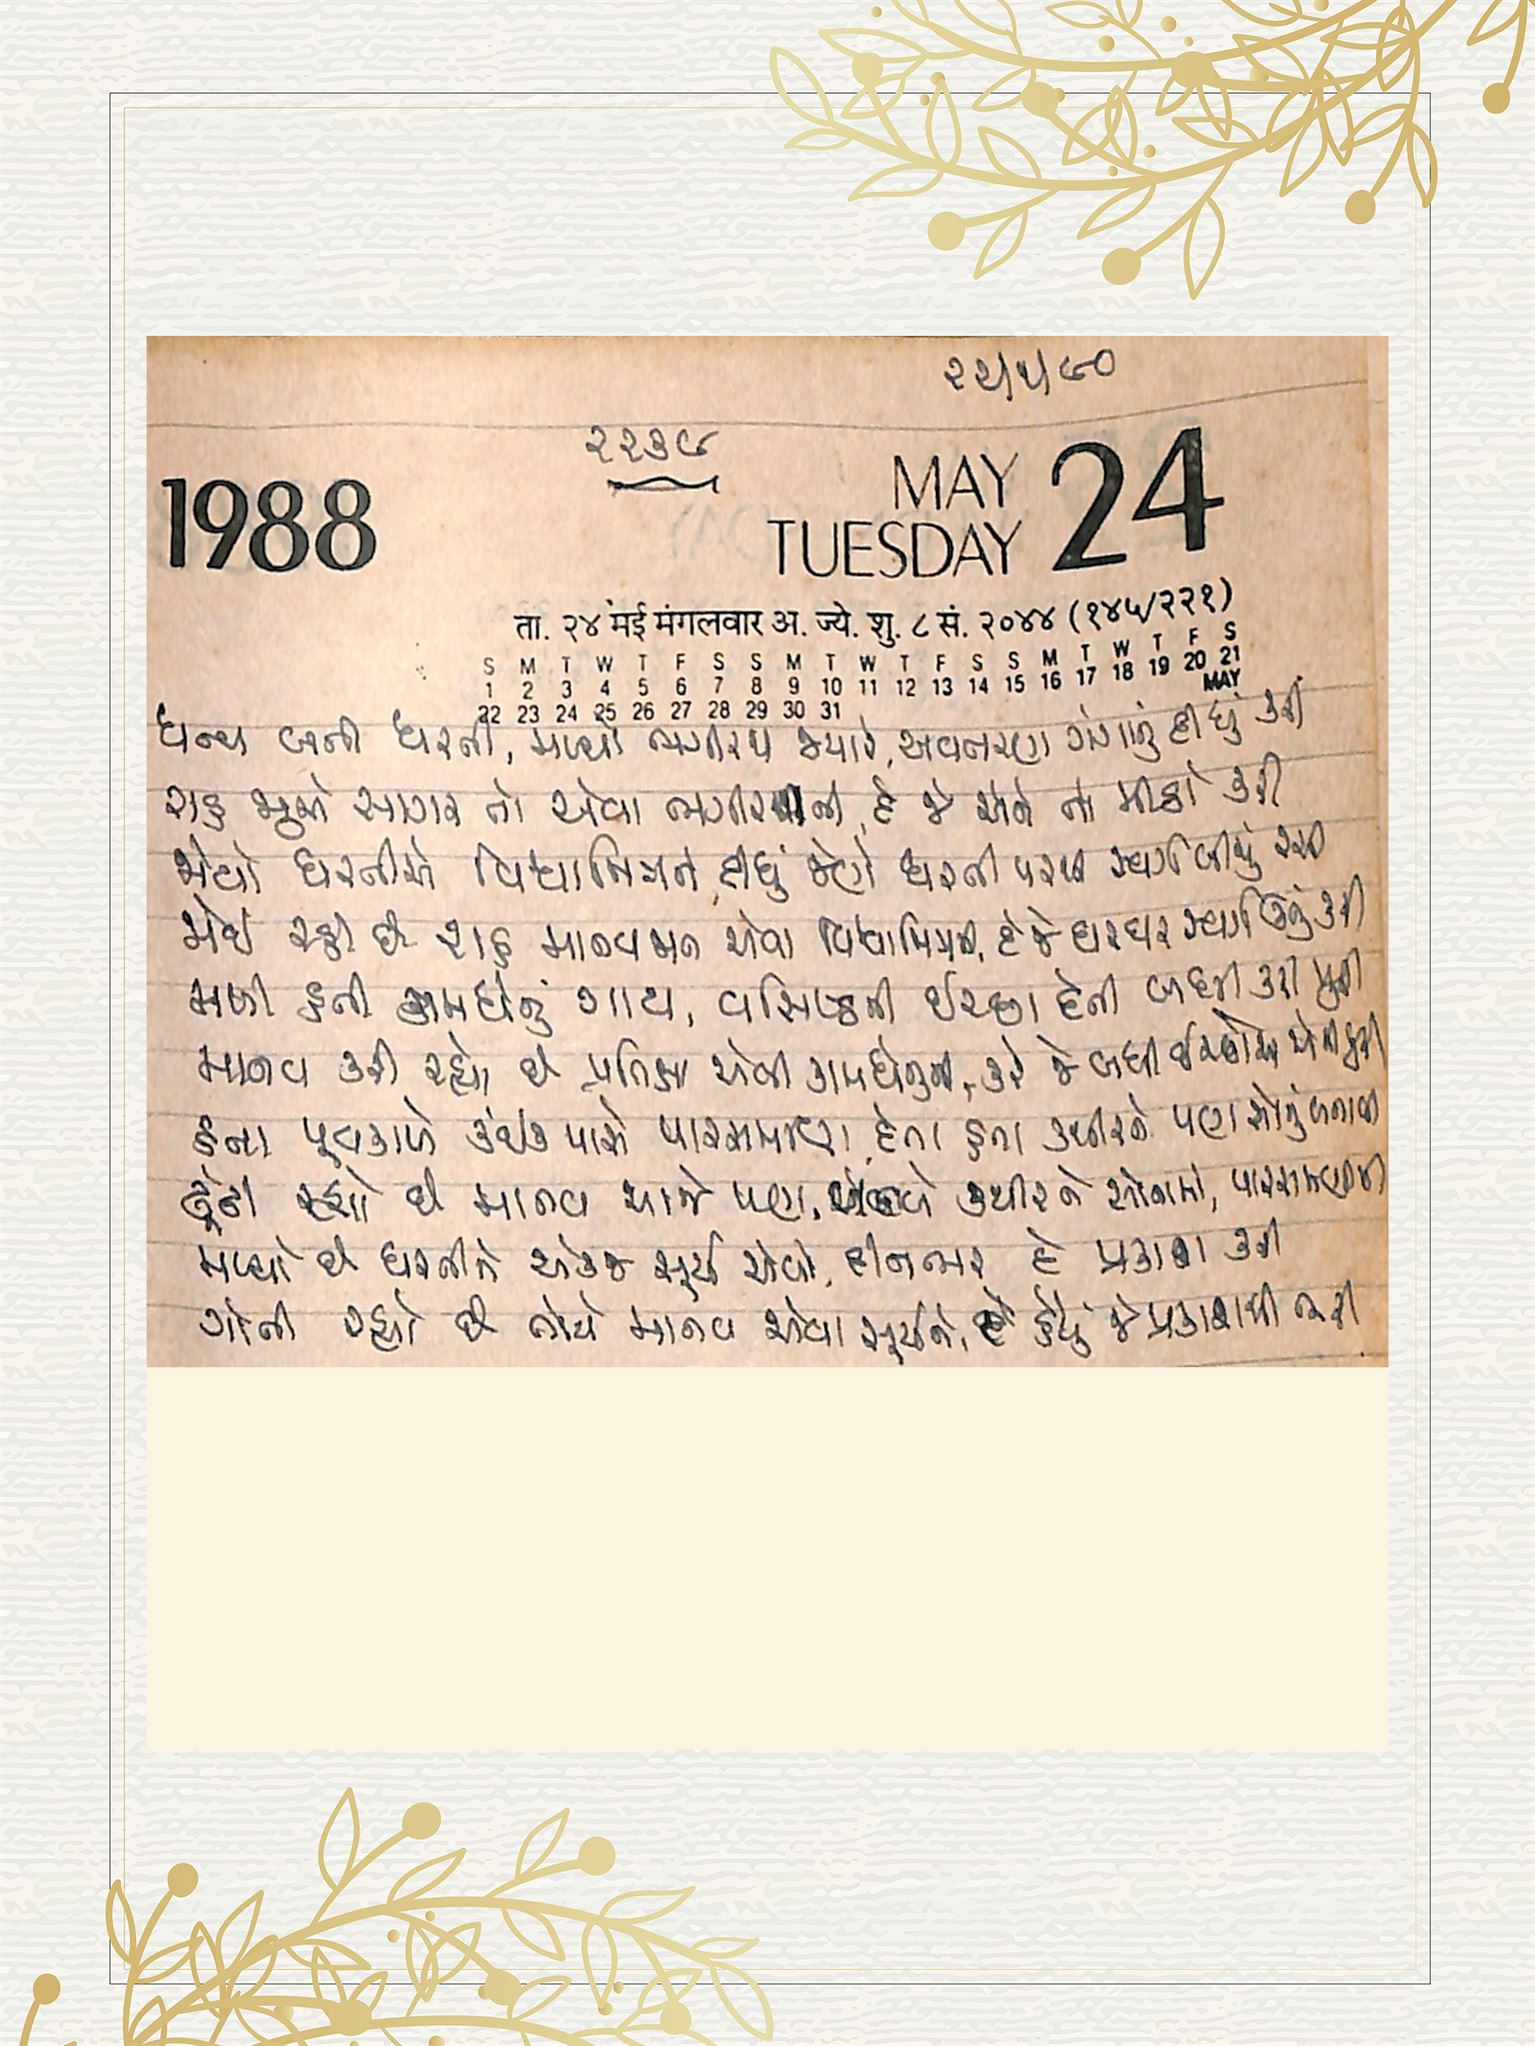 ૨૨/૫/૯૦
૨૨૩૯
1988
MAY 24
TUESDAY
ता. २४ मई मंगलवार अ. ज्ये. शु. ८ सं. २०४४ (१४५/२२१)
S M T W T F S S M T W T F S S M T W T F S
1 2 3 4 5 6 7 8 9 10 11 12 13 14 15 16 17 18 19 20 21
22 23 24 25 26 27 28 29 30 31 MAY
ધન્ય બની ધરતી, મળ્યો ભગીરથ જ્યારે, અવતરણ ગંગાનું દીધું કરી
રાહ જુએ સાગર તો એવા ભગીરથની, દે જે એને તો મીઠો કરી
મેળ્યો ધરતીએ વિશ્વામિત્રને, દીધું જેણે ધરતી પરજ સ્વર્ગ બીજું રચી
મથી રહ્યી છે રાહ માનવ મન એવા વિશ્વામિત્રની, દે જે ઘરઘર સ્વર્ગ ઊભું કરી
મળી હતી કામધેનું ગાય, વસિષ્ઠની ઈચ્છા દેતી બધી કરી પુરી
માનવ કરી રહ્યો છે પ્રતિક્ષા એવી કામધેનુની, કરે જે બધી ઈચ્છાઓ એની પુરી
હતા પૂર્વકાળે કંઈક પાસે પારસમણિ, દેતા હતા કથીરને પણ સોનું બનાવી
ઢૂંઢી રહ્યો છે માનવ આજે પણ, કથીરને સોનામાં, પારસમણિની
મળ્યો છે ધરતીને એકજ સૂર્ય એવો, દીનભર દે પ્રકાશ કરી
ગોતી રહ્યો છે તોયે માનવ એવા સૂર્યને, દે હૈયું જે પ્રકાશથી ભરી